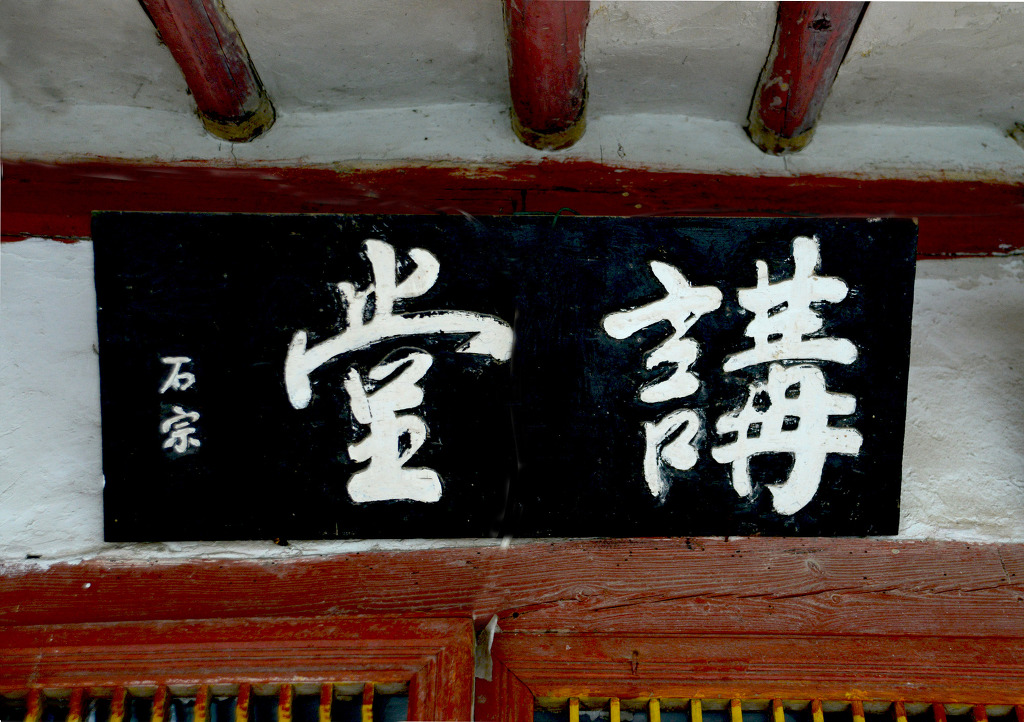 講堂
石宗